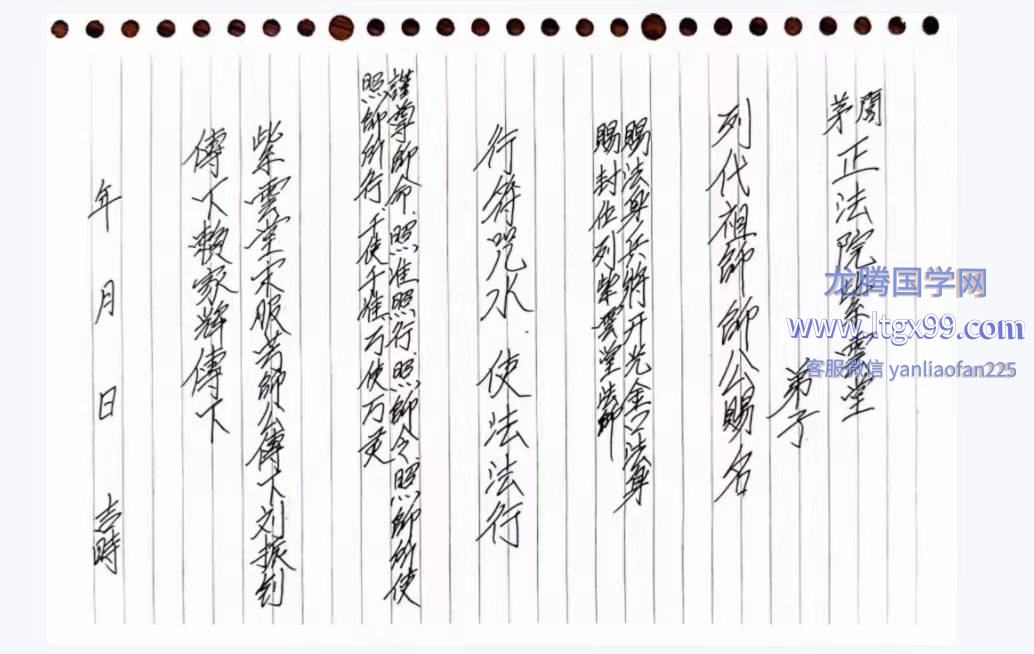 閭茅正法院紫雲堂
弟子
列代祖師師公賜名
賜法身兵將开光金口法身
賜封位列紫雲堂
行符咒水.使法法行
謹尊師命.照准照行.照師令.照師所使
照師所行.千使千准万使万灵
紫雲堂宋服芳師公傳下刘振釗
傳下賴家輝傳下
年 月 日 吉時
龙腾国学网
www.ltgx99.com
客服微信 yanliaofan225